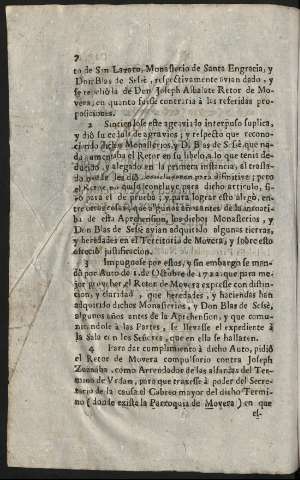 to de San Lazaro, Monasterio de Santa Engracia, y
Don Blas de Sesè, respectivamente avian dado, y
se repeliò la de Don Joseph Albalate Retor de Mo-
vera, en quanto fuesse contraria à las referidas pro-
posiciones.
2 Sintiendose este agraviado interpuso suplica,
y diò su cedula de agravios; y respecto que recono-
ciendo dichos Monasterios, y D. Blas de Sesè, que na-
da aumentava el Retor en su libelo, à lo que tenia de-
ducido, y alegado en la primera instancia, el trasla-
do que se les diò, concluyeron para difinitiva; pero
el Retor, no quiso concluir para dicho articulo, si-
no para el de prueba; y para lograr este alegò, en-
tre otras cosas, que algunos años antes de la
ba de esta Aprehension, los dichos Monasterios, y
Don Blas de Sesè avian adquirido algunas tierras,
y heredades en el Territorio de Movera, y sobre esto
ofreciò justificacion.
3 Impugnose por ellos, y sin embargo se man-
dò por Auto de 1. de Octubre de 1722. que para me-
jor proveher el Retor de Movera expresse con distin-
cion, y claridad, que heredades, y haciendas han
adquirido dichos Monasterios, y Don Blas de Sesè,
algunos años antes de la Aprehension, y que comu-
nicandole à las Partes, se llevasse el expediente à
la Sala en los Señores, que en ella se hallaren.
4 Para dar cumplimiento à dicho Auto, pidiò
el Retor de Movera compulsorio contra Joseph
como Arrendador de las alfardas del Ter-
mino de Urdan, para que traxesse à poder del Secre-
tario de la causa el Cabreo mayor del dicho Termi-
no (donde existe la Parroquia de Movera) en que
el-